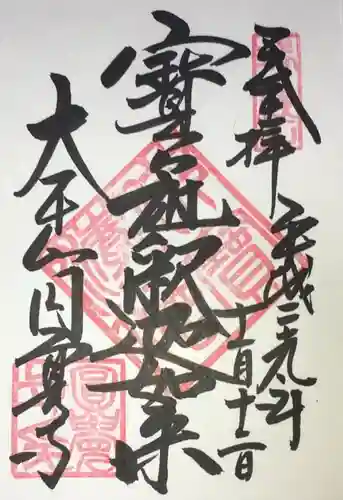 奉拝
平成二九年
十一月十二日
寳冠釈迦如来
大本山円覚寺